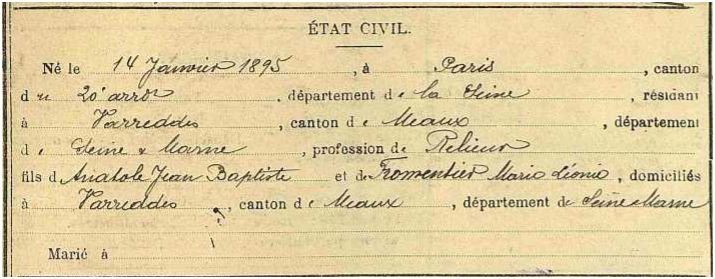 ÉTAT CIVIL.
Né le 14 Janvier 1895, à Paris, canton
du 20e arrot, département de la Seine, résidant
à Varreddes, canton de Meaux, département
de Seine & Marne, profession de Relieur
fils d'Anatole Jean Baptiste et de Fromentier Marie Léonie, domiciliés
à Varreddes, canton de Meaux, département de Seine & Marne
Marié à